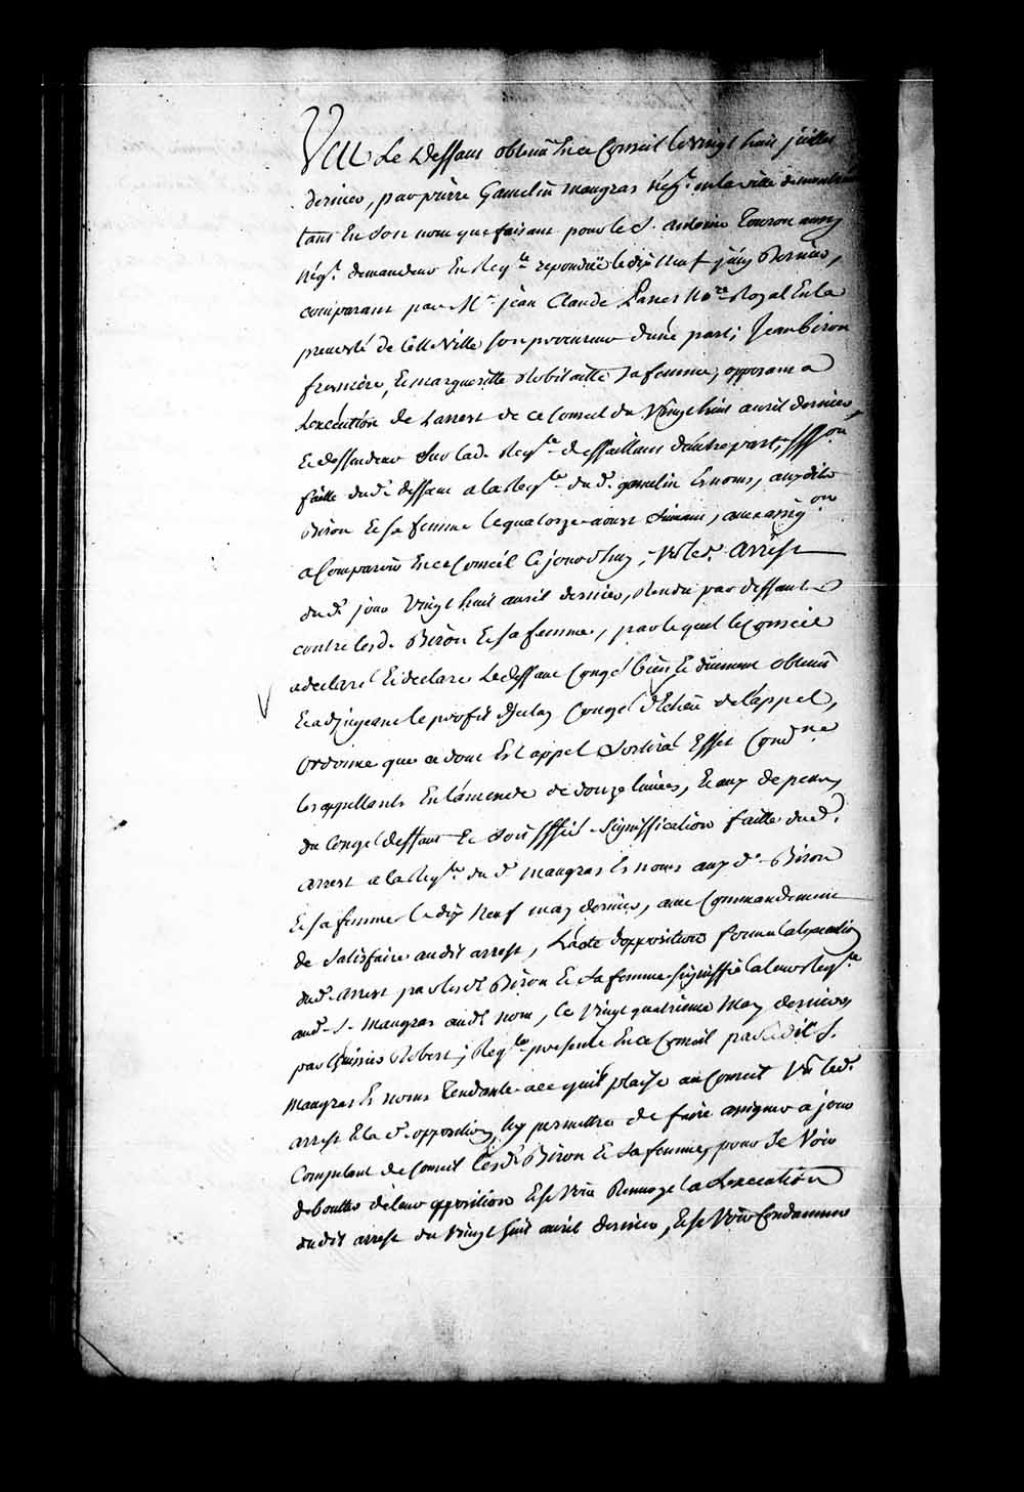 Veu Le Deffaut obtenu En ce Conseil le vingt huit juillet
dernier, par pierre Gamelin maugras Neg.t en la ville de montreal
tant En son nom que faisant pour le S. antoine Touron aussy
Neg.t demandeur En Req.te repondüe le dix Neuf juin Dernier,
comparant par M.e jean Claude Panet No.re Royal En la
prevosté de Cette Ville son procureur d'une part; Jean biron
fresnière, Et marguerite Robitaille sa femme, opposant a
Lexecution de Larrest de ce Conseil du Vingt huit avril dernier
Et deffendeur Sur lad. Req.te deffaillans dautre part,
faitte dud. deffaut a la Req.te du d. gamelin Es noms, auxdits
Biron Et sa femme le quatorze aoust Suivant, avec assig.on
a Comparoir En ce Conseil Ce jourdhuy, Vu led. Arrest
dud. jour Vingt huit avril dernier, Rendu par deffaut
contre lesd. Biron Et sa femme, par lequel le Conseil
a declaré Et declare Le deffaut Congé bien Et düement obtenu
Et adjugeant le profit dJceluy Congé Déchu de l'appel,
Ordonne que ce dont Est appel Sortira Effet Cond.ne
les appellants En l'amende de douze livres, Et aux depens,
du Congé deffaut Et Signiffication faitte dud.
arrest a la Req.te du d. maugras Es noms aux d. Biron
Et sa femme le dix Neuf may dernier, avec Commandement
de Satisfaire au dit arrest, L'acte d'opposition formé a lexecution
dud. arrest par lesd. Biron Et Sa femme signiffié a leur Req.te
aud. S. Maugras aud. Nom, le Vingt quatrieme May dernier
par huissier Robert; Req.te presentée En ce Conseil par Ledit S.
Maugras Es noms Tendante a ce quil plaise au Conseil Vu led.
arrest Et la d. opposition, luy permettre de faire assigner a jour
Competant de Conseil lesd. Biron Et sa femme, pour Se Voir
deboutter de leur opposition Et se Voir la Lexecution
dudit arrest du Vingt huit avril dernier, Et se Voir Condamner